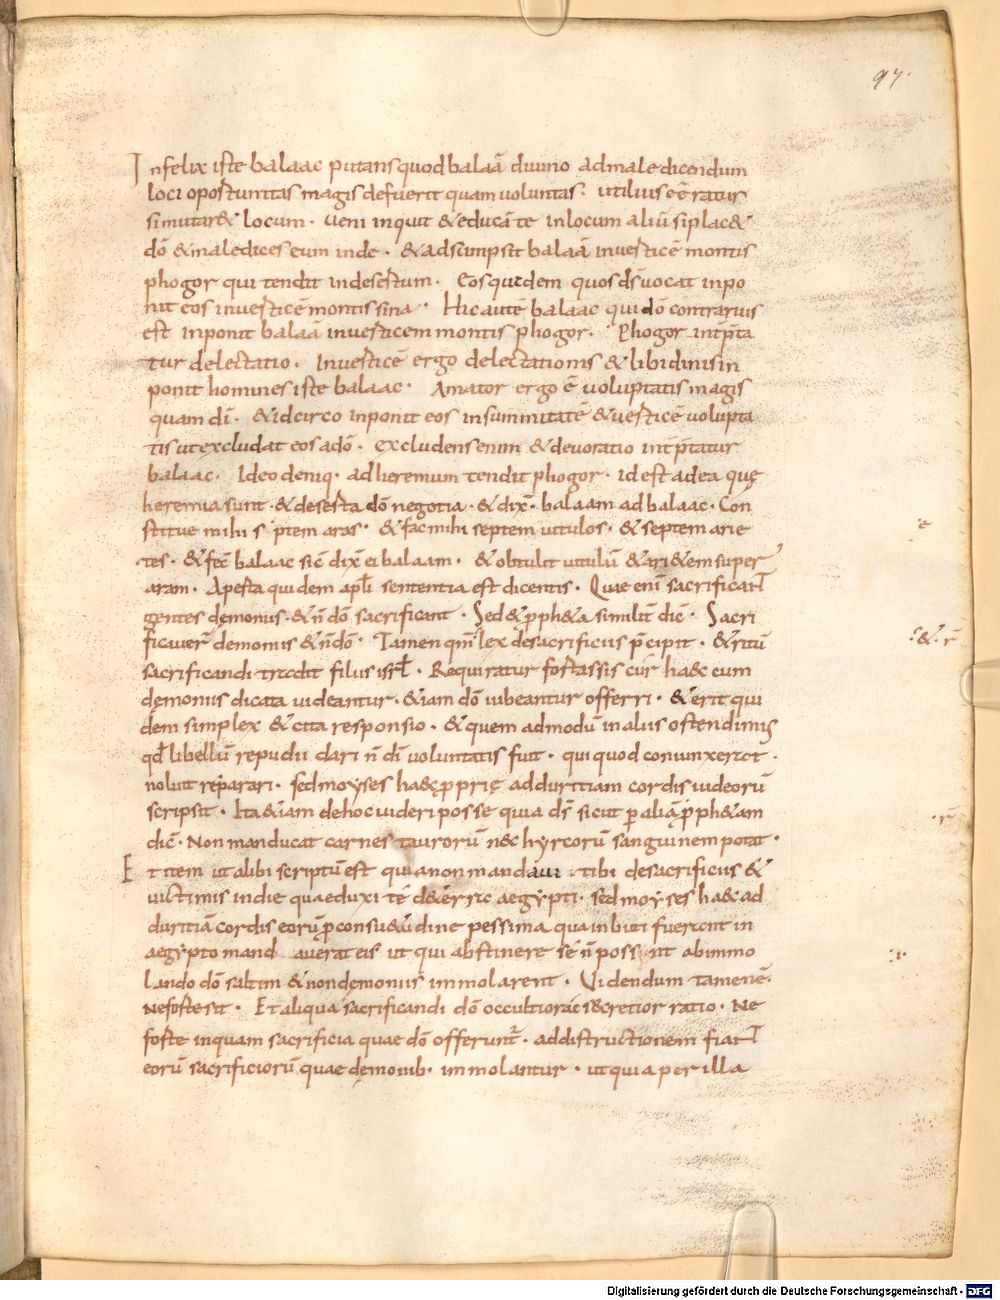 97.
Infelix iste balaac putans quod balaā diuino ad maledicendum
loci oportunitas magis defuerit quam uoluntas. utilius eē ratus
si mutar& locum. ueni inquit & educā te in locum aliū si plac&
dō & maledices eum inde. & adsumpsit balaā in uerticē montis
phogor qui tendit in desertum. Eos quidem quos dS uocat inpo
nit eos in uerticē montis sina. Hic autē balaac qui dō contrarius
est inponit balaā in uerticem montis phogor. Phogor int̄p̄ta
tur delectatio. In uerticē ergo delectationis & libidinis in
ponit homines iste balaac. Amator ergo ē uoluptatis magis
quam dī. & idcirco inponit eos in summitatē & uerticē uolupta
tis ut excludat eos a dō. excludens enim & deuoratio int̄p̄tatur
balaac. Ideo deniq. ad heremum tendit phogor. id est ad ea quę
heremia sunt. & deserta dō negotia. & dix̄. balaam ad balaac. Con
stitue mihi s ptem aras. & fac mihi septem uitulos. & septem arie
tes. & fec̄ balaac sic̄ dix̄ ei balaam. & obtulit uitulū & ari&em super
aram. Aperta quidem apłi sententia est dicentis. Quae enī sacrificant
gentes dęmonus. & n̄ dō sacrificant. Sed & p̄ph&a similit̄ dic̄. Sacri
ficauer̄ demonus & n̄ dō. Tamen qm̄ lex de sacrificiis p̄cipit. & ritū
sacrificandi tradit filiis isrł. Requiratur fortassis cur haec cum
:&. r̄
dęmonus dicata uideantur. & iam dō iubeantur offerri. & erit qui
dem simplex & cita responsio. & quem admodū in aliis ostendimus
qd libellū repudii dari n̄ dī uoluntatis fuit. qui quod coniunxerat.
noluit reparari. sed moyses haec p̄prię ad duritiam cordis iudeorū
scripsit. Ita & iam de hoc uideri posse quia dS sicut p aliā p̄ph&am
dic̄. Non manducat carnes taurorū nec hyrcorū sanguinem potat.
Et item ut alibi scriptū est quia non mandaui tibi de sacrificiis &
uictimis in die qua eduxi te de terra aegypti. sed moyses haec ad
duritiā cordis eorū p consu&udine pessima qua inbuti fuerant in
aegypto mand auerat eis ut qui abstinere se n̄ poss nt ab immo
lando dō saltim & non dęmoniis immolarent. Uidendum tamen ē.
ne forte sit. Et aliqua sacrificandi dō occultior ac secretior ratio. Ne
forte inquam sacrificia quae dō offerunt. ad distructionem fiant
eorū sacrificiorū quae dęmonib. immolantur. ut quia per illa
Digitalisierung gefördert durch die Deutsche Forschungsgemeinschaft - DFG